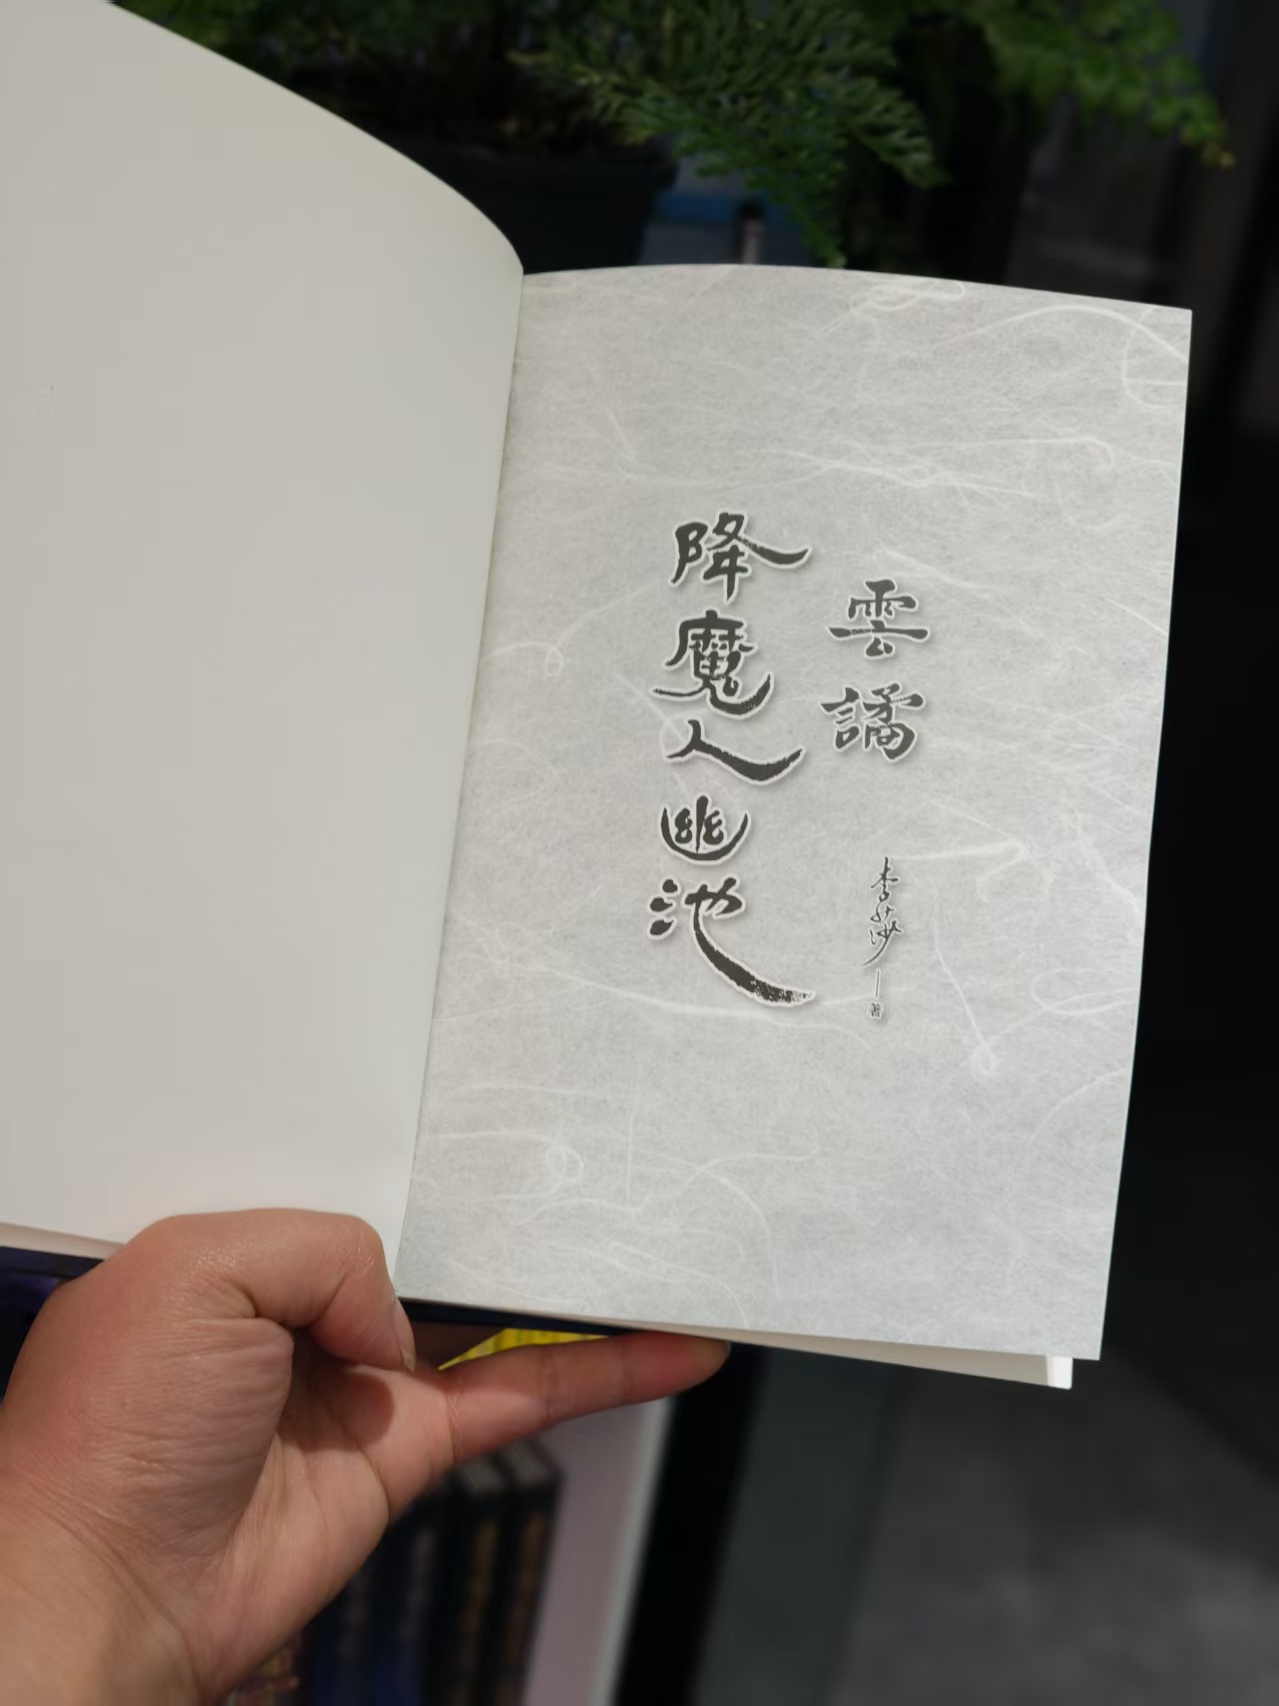 雲譎
李莎
著
降魔人幽池